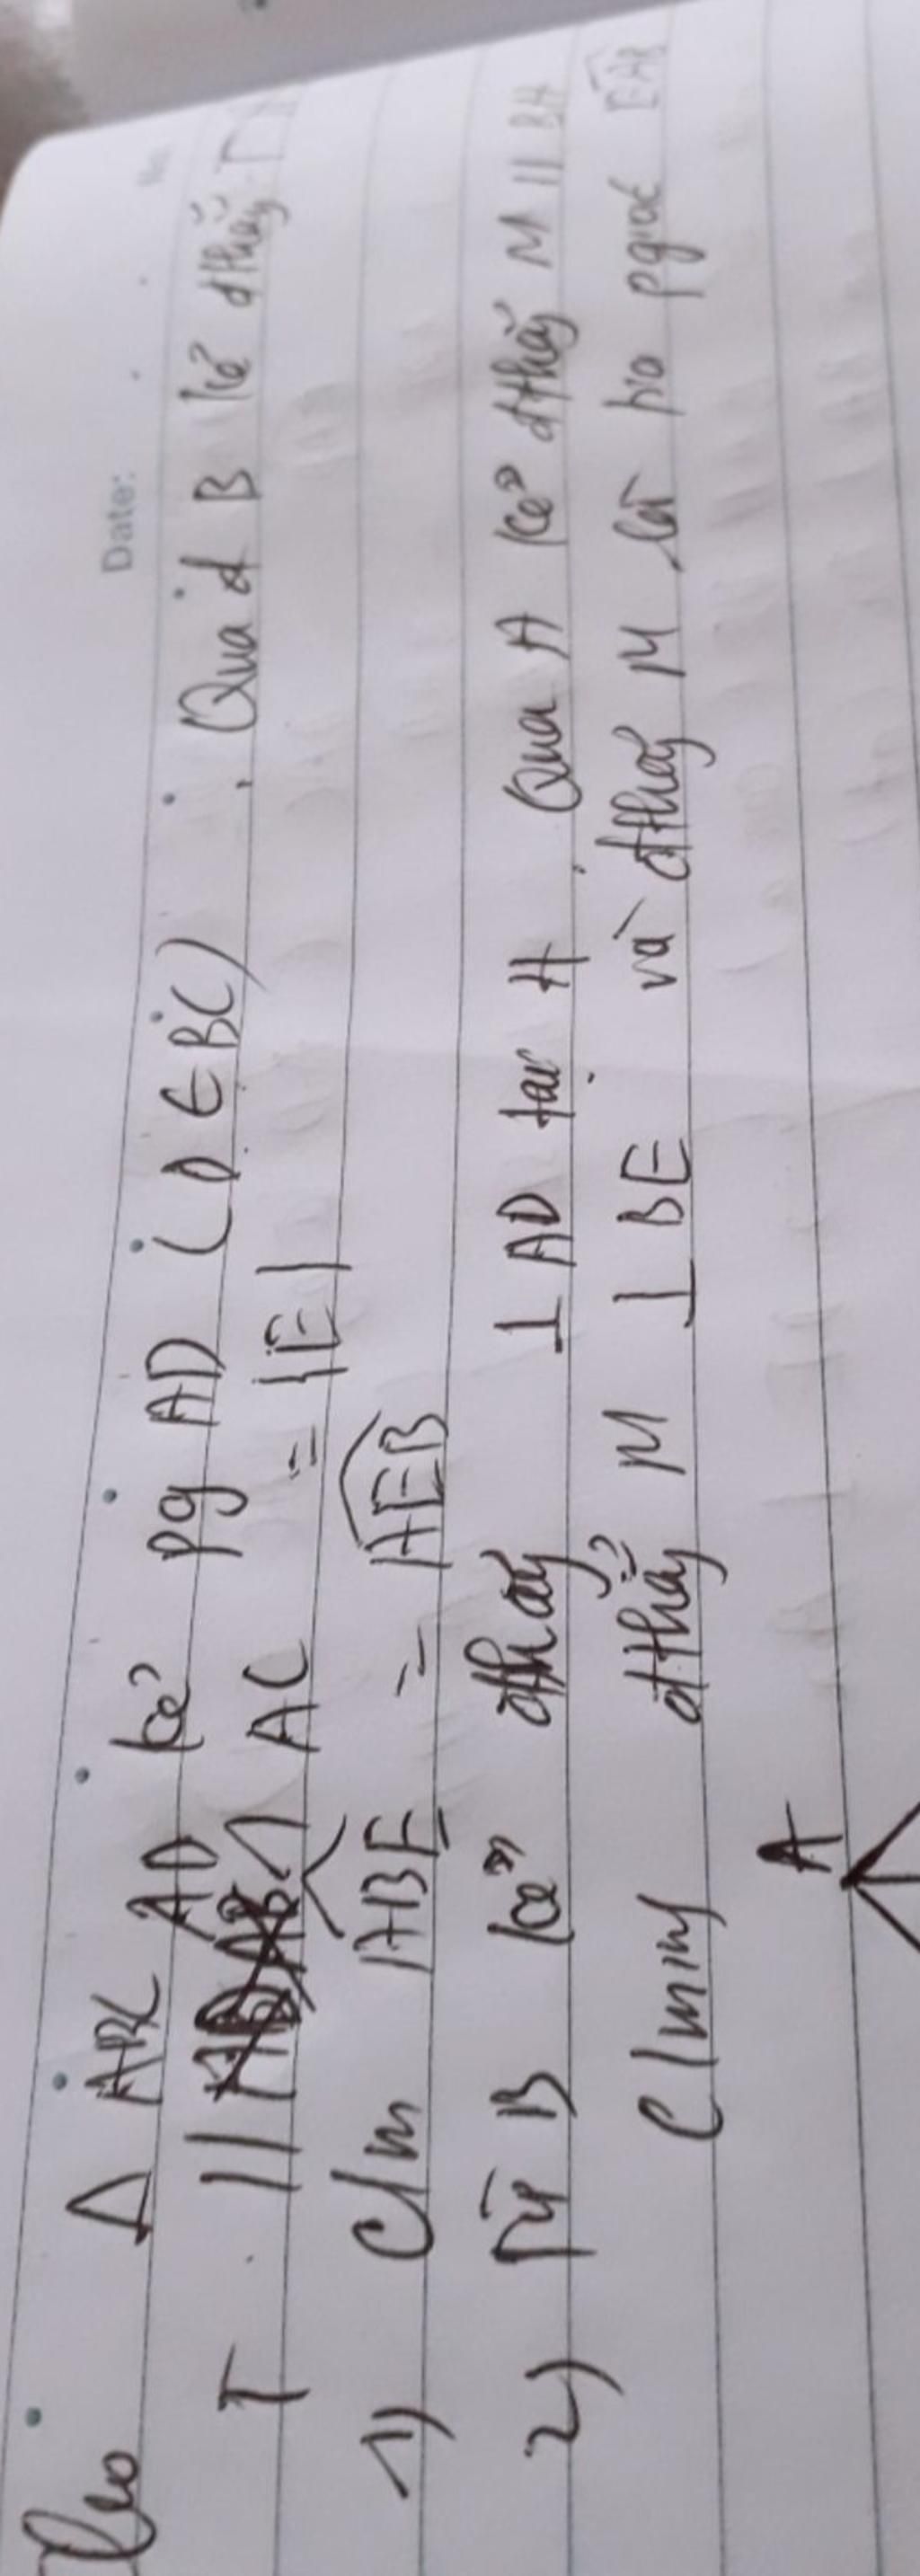 Date: No:
Cho Δ ABC kẻ pg AD (D ∈ BC). Qua đ B kẻ đthẳng T
T // AD ∩ AC = {E}
1) C/m ABE = AEB
2) Từ B kẻ đthẳng ⊥ AD tại H. Qua A kẻ đthẳng M // BH
C/minh đthẳng M ⊥ BE và đthẳng M là tia pgiác EAB
A